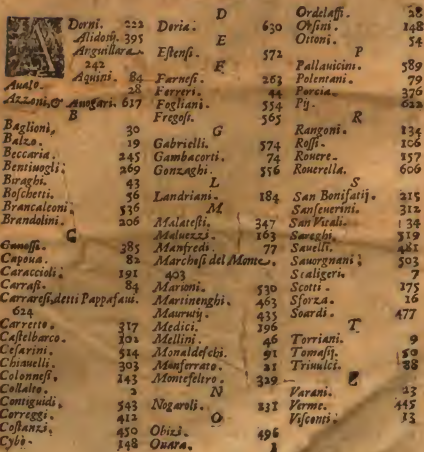 Adorni. 222
Alidosij. 395
Anguillara
242
Aquini. 84
Aualo. 28
Azzoni,& Auogari. 617
B
Baglioni, 30
Balzo. 19
Beccaria. 245
Bentiuogli: 269
Biraghi. 43
Boschetti. 56
Brancaleoni: 536
Brandolini. 206
C
Canossi. 385
Capoua. 82
Caraccioli; 191
Carrafi. 84
Carraresi,detti Pappafaui.
624
Carretto. 317
Castelbarco. 102
Cesarini. 514
Chiauelli. 303
Colonnesi. 143
Collalto. 2
Contiguidi. 543
Correggi. 412
Costanzi. 450
Cybò. 148
D
Doria. 630
E
Estensi. 572
F
Farnesi. 263
Ferreri. 44
Fogliani. 554
Fregosi. 565
G
Gabrielli. 574
Gambacorti. 74
Gonzaghi. 556
L
Landriani. 184
M
Malatesti. 347
Maluezzi. 163
Manfredi. 77
Marchesi del Monte.
403
Marioni. 530
Martinenghi. 463
Mauruzij. 435
Medici. 196
Mellini. 46
Monaldeschi. 91
Monferrato. 21
Montefeltro. 329
N
Nogaroli. 231
O
Obizi. 496
Ouara. 1
Ordelaffi. 28
Orsini. 148
Ottoni. 54
P
Pallauicini. 589
Polentani. 79
Porcia. 376
Pij. 622
R
Rangoni. 134
Rossi. 106
Rouere. 157
Rouerella. 606
S
San Bonifatij. 215
Sanseuerini. 312
San Vitali. 134
Sareghi. 519
Sauelli. 481
Sauorgnani; 503
Scaligeri. 7
Scotti. 175
Sforza. 16
Soardi. 477
T
Torriani. 9
Tomasij. 50
Triuulci. 88
Varani. 23
Verme. 445
Visconti. 13